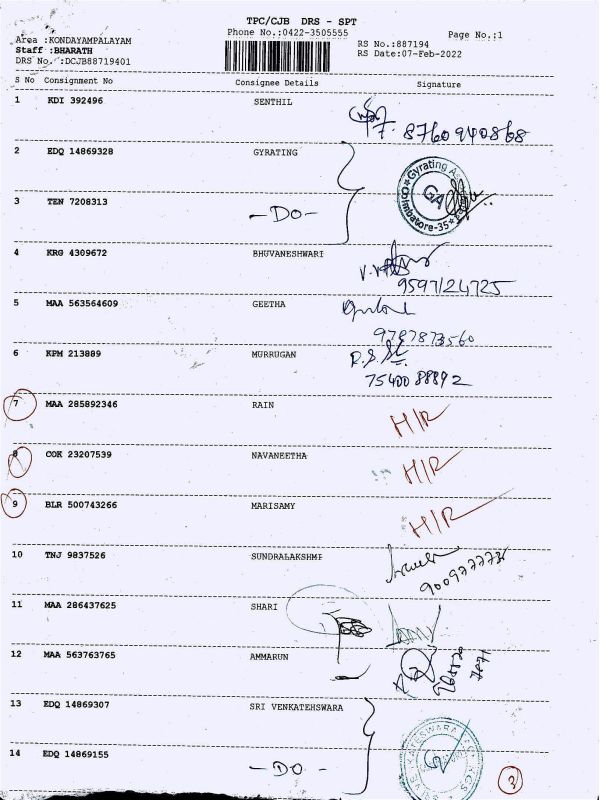 TPC/CJB DRS - SPT
Phone No.:0422-3505555
Page No.:1
Area :KONDAYAMPALAYAM
Staff :BHARATH
DRS No. :DCJB88719401
RS No.:887194
RS Date:07-Feb-2022
S No Consignment No Consignee Details Signature
1 KDI 392496 SENTHIL
8760940868
2 EDQ 14869328 GYRATING
3 TEN 7208313 -DO-
Gyrating
GA
Coimbatore-35
4 KRG 4309672 BHUVANESHWARI
9597124725
5 MAA 563564609 GEETHA
9787873560
6 KPM 213889 MURRUGAN
R.S.
7540088892
7 MAA 285892346 RAIN H/R
8 COK 23207539 NAVANEETHA H/R
9 BLR 500743266 MARISAMY H/R
10 TNJ 9837526 SUNDRALAKSHMI
11 MAA 286437625 SHARI
12 MAA 563763765 AMMARUN
13 EDQ 14869307 SRI VENKATEHSWARA
14 EDQ 14869155 -DO-